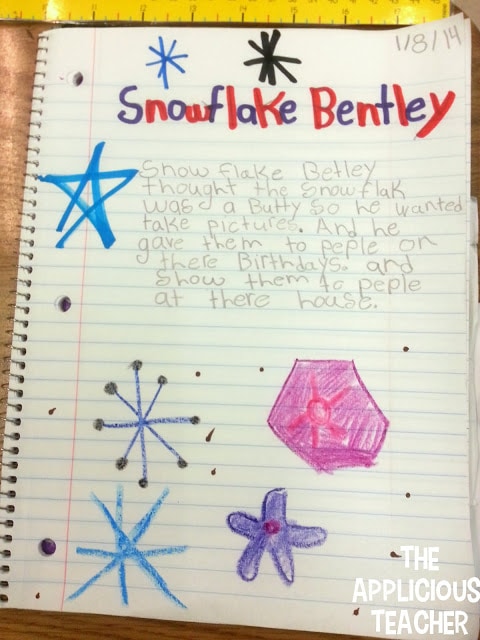 1/8/14
Snowflake Bentley
Snow flake Betley
thought the snowflak
was a Butty so he wanted
take pictures. And he
gave them to peple on
there Birthdays. and
Show them to peple
at there house.
THE
APPLICIOUS
TEACHER